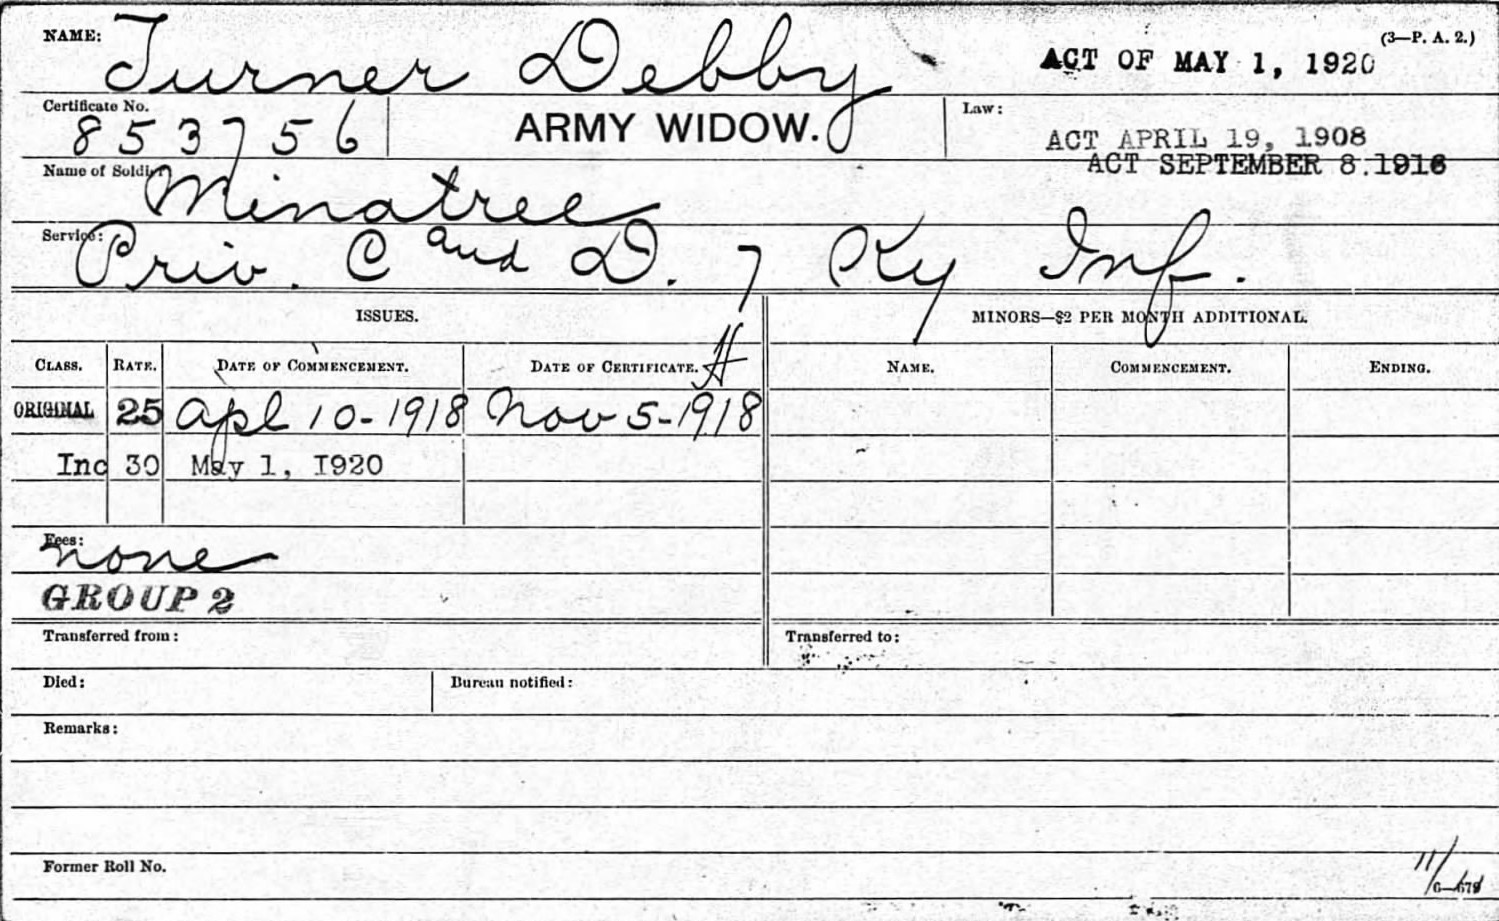 (3—P. A. 2.)
NAME: Turner Debby ACT OF MAY 1, 1920
Certificate No. 853756 ARMY WIDOW. Law: ACT APRIL 19, 1908
ACT SEPTEMBER 8. 1916
Name of Soldier: Minatree
Service: Priv. C and D. 7 Ky Inf.
ISSUES. MINORS—$2 PER MONTH ADDITIONAL.
CLASS. RATE. DATE OF COMMENCEMENT. DATE OF CERTIFICATE. NAME. COMMENCEMENT. ENDING.
ORIGINAL 25 Apl 10-1918 Nov 5-1918
Inc 30 May 1, 1920
Fees: none
GROUP 2
Transferred from: Transferred to:
Died: Bureau notified:
Remarks:
Former Roll No. 11/